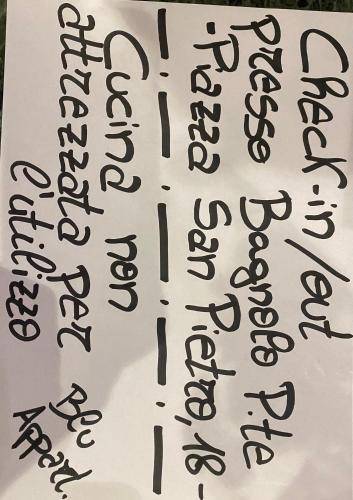 Check-in/out
presso Bagnolo P.te
-Piazza San Pietro, 18-
Cucina non
attrezzata per
l'utilizzo
Blu
Appart.